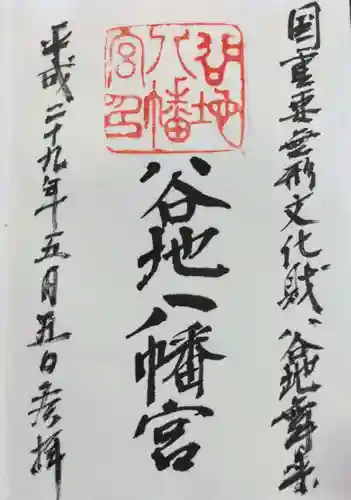 国重要無形文化財 谷地舞楽
谷地八幡宮
谷地八幡宮印
平成二十九年五月五日奉拝